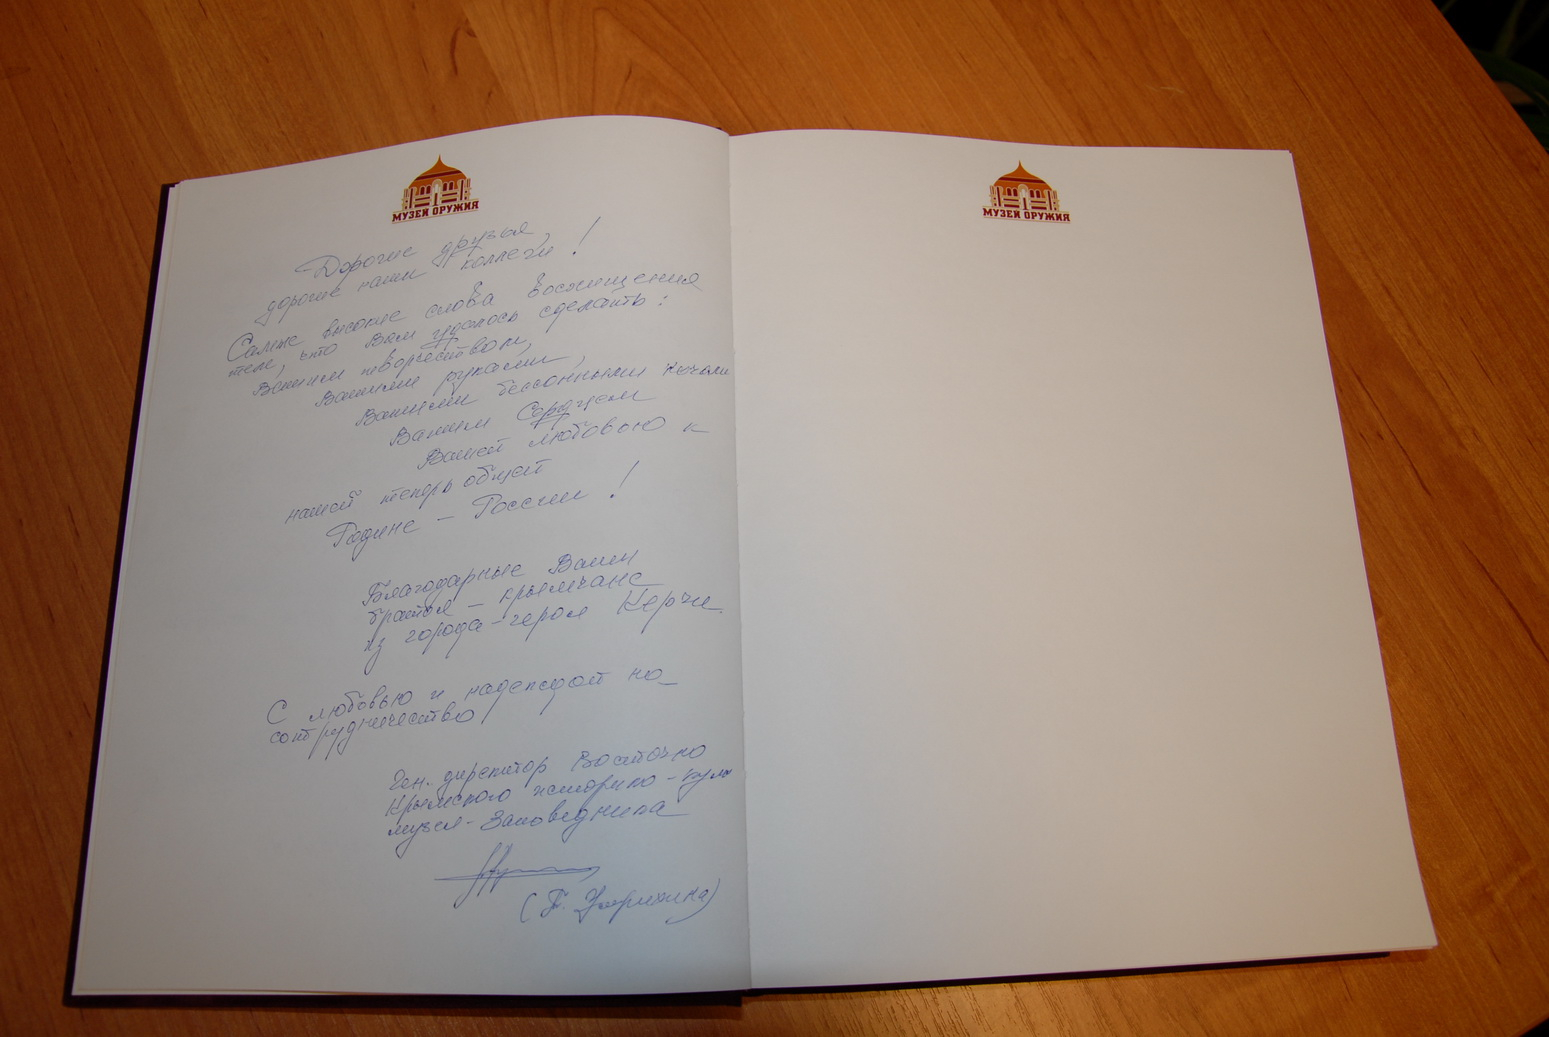 МУЗЕЙ ОРУЖИЯ
Дорогие друзья,
дорогие наши коллеги!
Самые высокие слова восхищения
тем, что Вам удалось сделать:
Вашим творчеством,
Вашими руками,
Вашими бессонными ночами
Вашим Сердцем
Вашей любовью к
нашей теперь общей
Родине – России!
Благодарные Вами
братья – крымчане
из города-героя Керчи.
С любовью и надеждой на
сотрудничество
Ген. директор Восточно
Крымского историко-культ
музея-Заповедника
(Т. Умрихина)
МУЗЕЙ ОРУЖИЯ